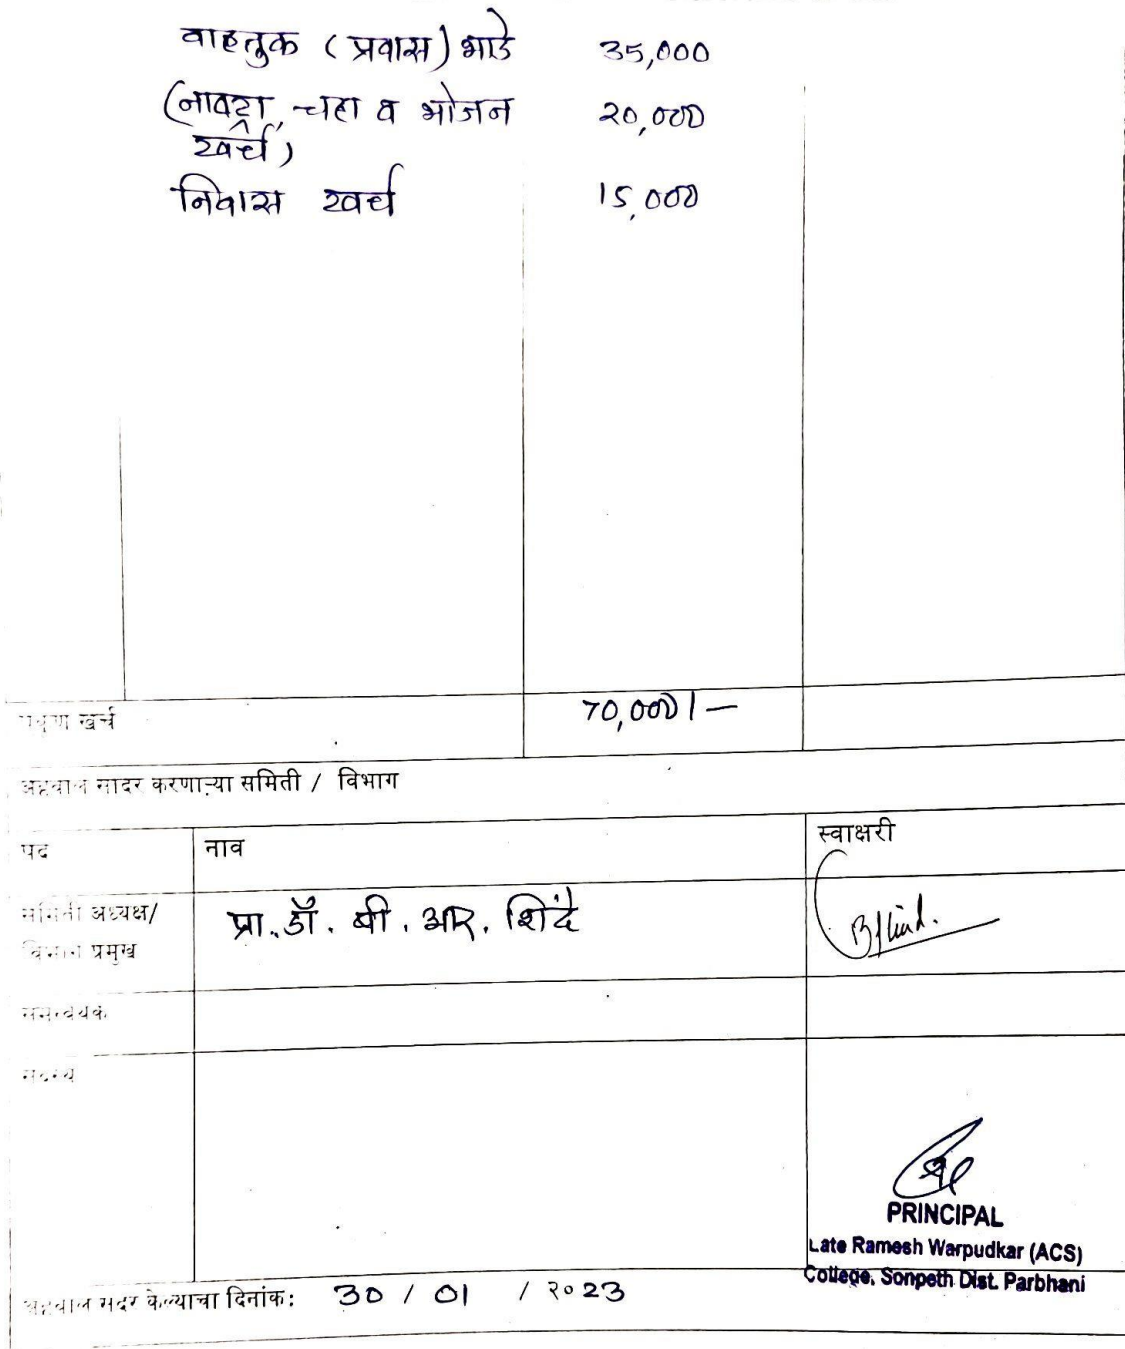 वाहतुक (प्रवास) भाडे 35,000
(नाश्ता, चहा व भोजन 20,000
खर्च)
निवास खर्च 15,000
खर्च 70,000/-
अहवाल सादर करणाऱ्या समिती / विभाग
पद नाव स्वाक्षरी
समिती अध्यक्ष/
विभाग प्रमुख
प्रा. डॉ. बी. आर. शिंदे
समन्वयक
सदस्य
PRINCIPAL
Late Ramesh Warpudkar (ACS)
College, Sonpeth Dist. Parbhani
अहवाल सदर केल्याचा दिनांक: 30 / 01 / २०23